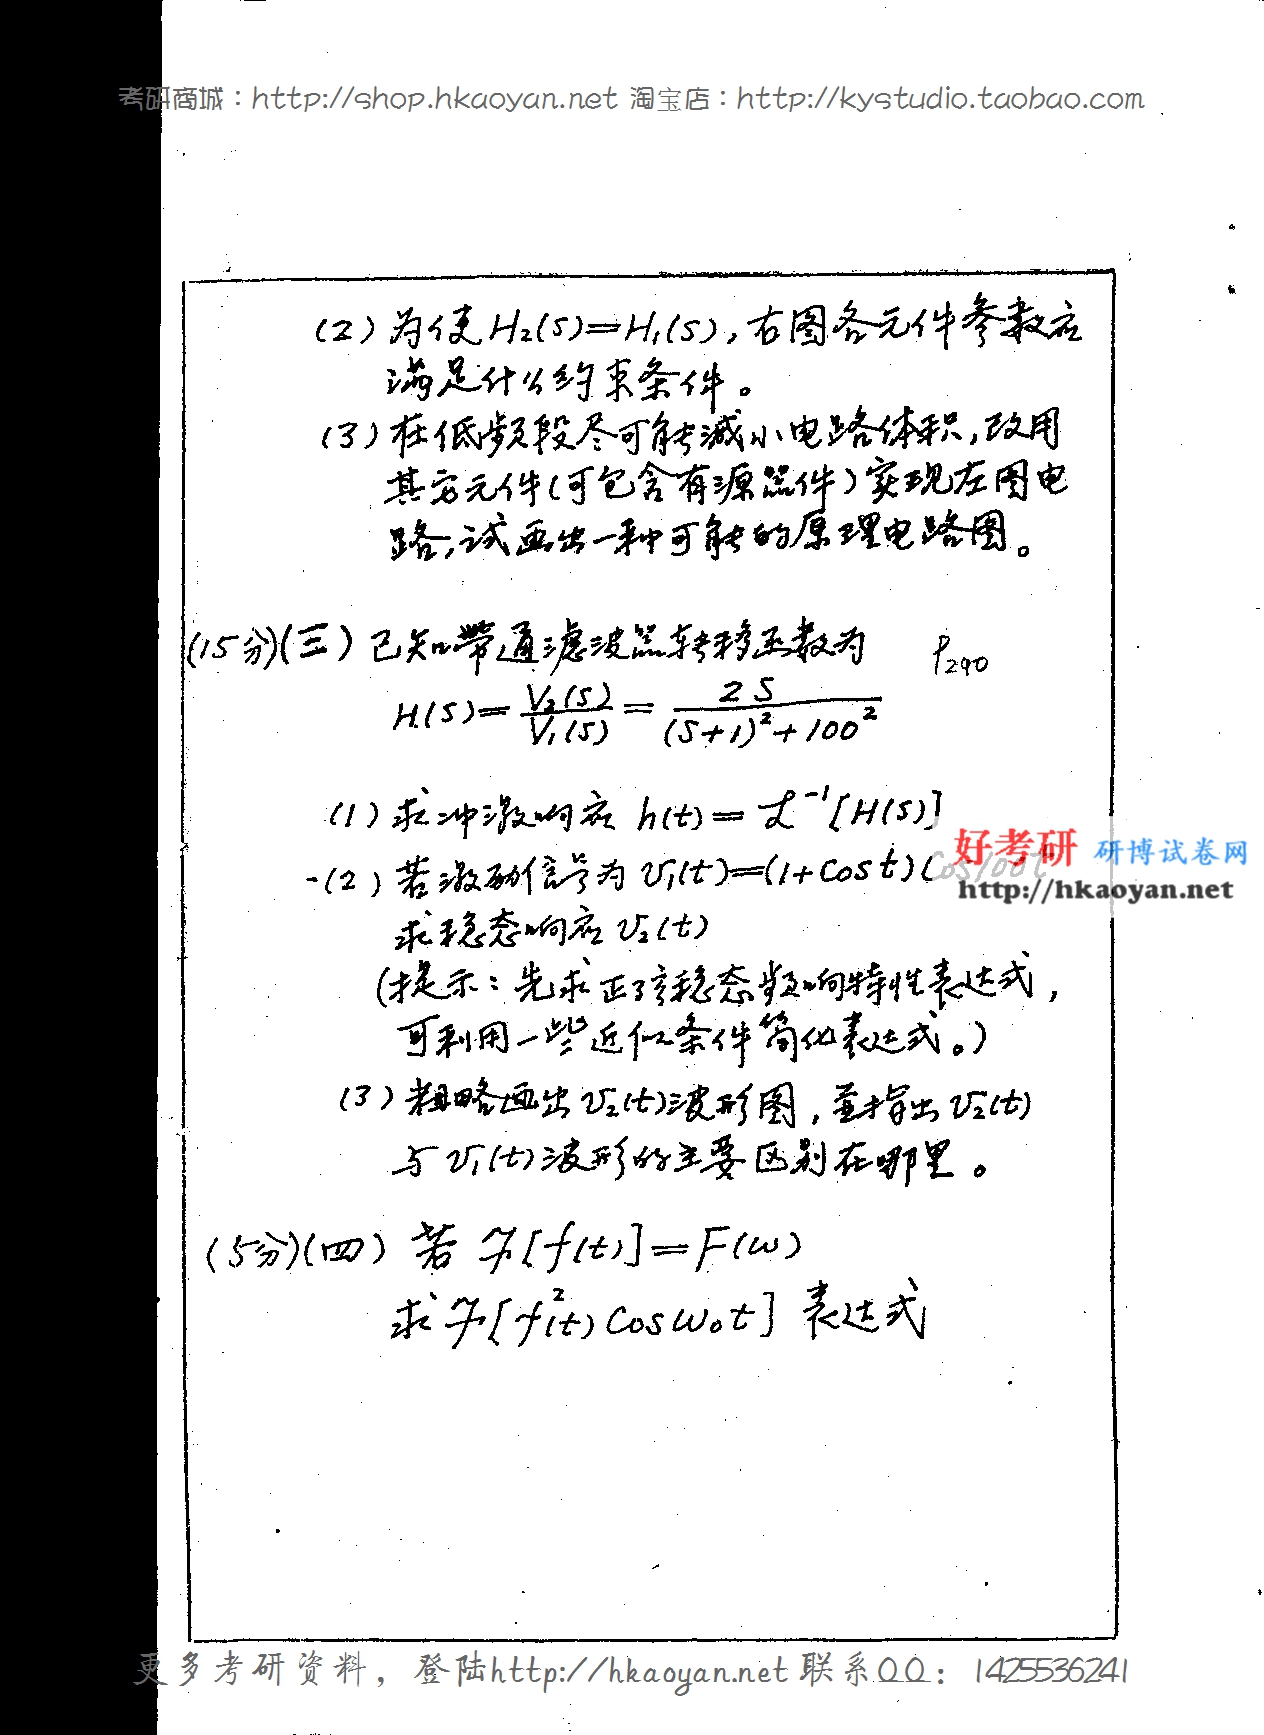 考研商城：http://shop.hkaoyan.net 淘宝店：http://kystudio.taobao.com
(2) 为使 H₂(s)=H₁(s)，右图各元件参数应
满足什么约束条件。
(3) 在低频段尽可能减小电路体积，改用
其它元件(可包含有源器件)实现左图电
路，试画出一种可能的原理电路图。
(15分)(三) 已知带通滤波器转移函数为 P₂₉₀
H(s)=V₂(s)/V₁(s)=2s/((s+1)²+100²)
(1) 求冲激响应 h(t)=ℒ⁻¹[H(s)]
(2) 若激励信号为 v₁(t)=(1+cost)cos100t
好考研 研博试卷网
http://hkaoyan.net
求稳态响应 v₂(t)
(提示：先求正弦稳态频响特性表达式，
可利用一些近似条件简化表达式。)
(3) 粗略画出 v₂(t)波形图，並指出 v₂(t)
与 v₁(t)波形的主要区别在哪里。
(5分)(四) 若 ℱ[f(t)]=F(ω)
求 ℱ[f²(t)cosω₀t] 表达式
更多考研资料，登陆http://hkaoyan.net 联系QQ：1425536241